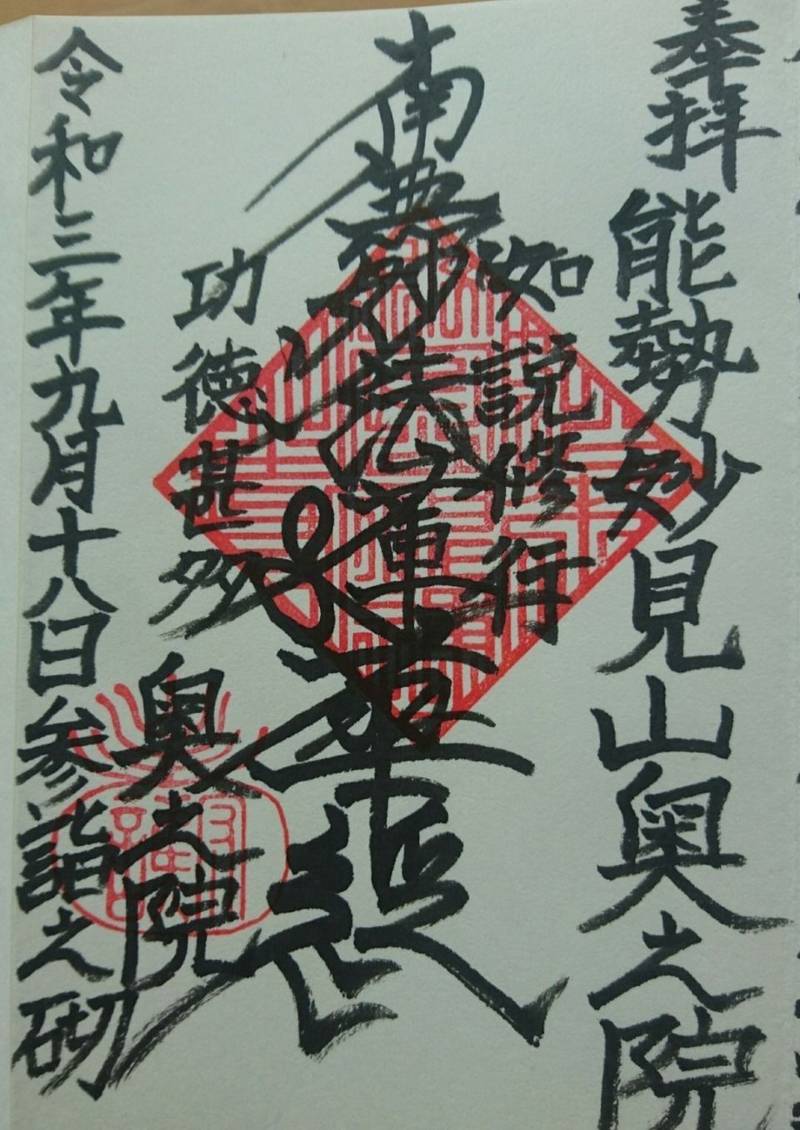 奉拝 能勢妙見山奥之院
如説修行
南無妙法蓮華経
功徳甚多
奥之院
令和三年九月十八日参詣之砌